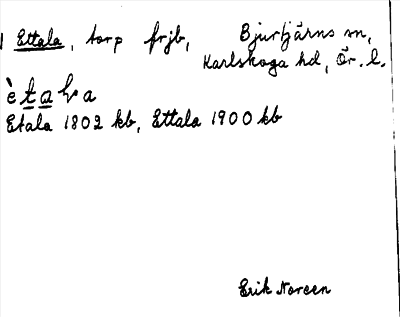 1 Ettala, torp frjb, Bjurtjärns sn,
Karlskoga hd, Ör. l.
ètaḷa
Etala 1802 kb, Ettala 1900 kb
Erik Noreen